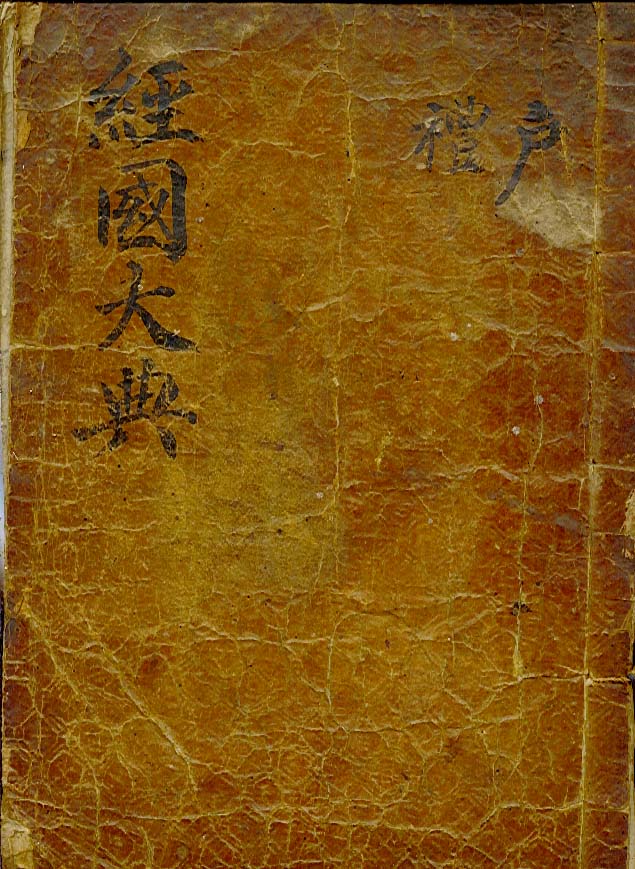 經國大典
戶
禮